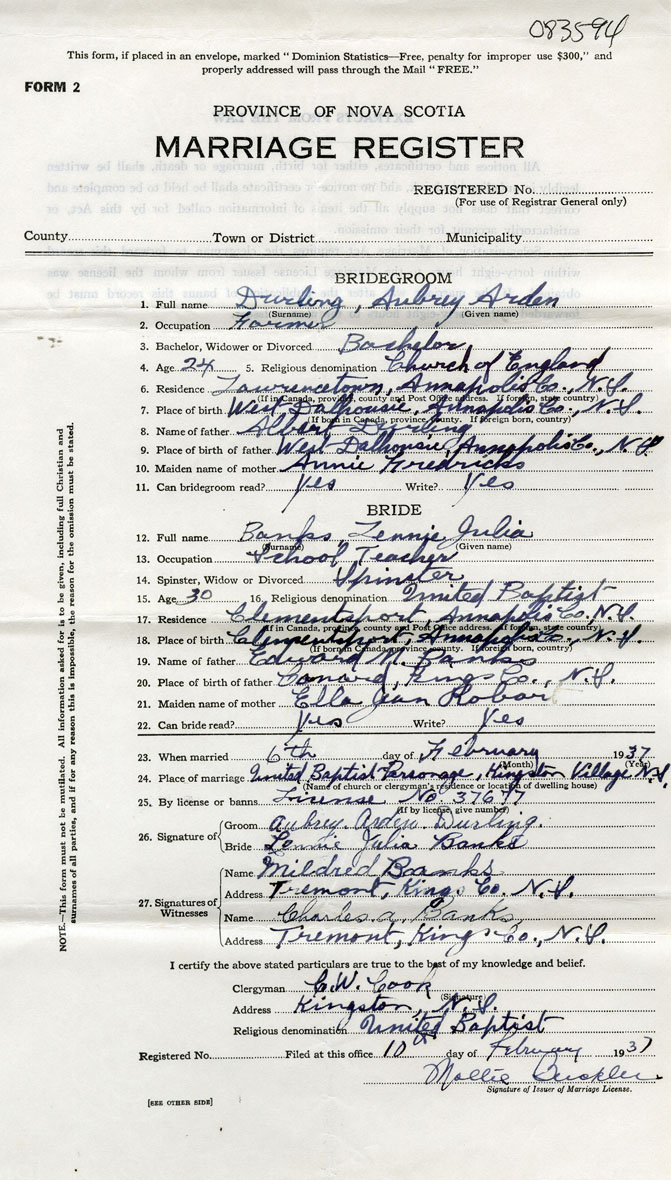 083594
This form, if placed in an envelope, marked "Dominion Statistics—Free, penalty for improper use $300," and
properly addressed will pass through the Mail "FREE."
FORM 2
PROVINCE OF NOVA SCOTIA
MARRIAGE REGISTER
REGISTERED No.
(For use of Registrar General only)
County Town or District Municipality
BRIDEGROOM
1. Full name Durling, Aubrey Arden
(Surname) (Given name)
2. Occupation Farmer
3. Bachelor, Widower or Divorced Bachelor
4. Age 24 5. Religious denomination Church of England
6. Residence Lawrencetown, Annapolis Co., N.S.
(If in Canada, province, county and Post Office address. If foreign, state country)
7. Place of birth West Dalhousie, Annapolis Co., N.S.
(If born in Canada, province, county. If foreign born, country)
8. Name of father Albert Durling
9. Place of birth of father West Dalhousie, Annapolis Co., N.S.
10. Maiden name of mother Annie Fredricks
11. Can bridegroom read? Yes Write? Yes
BRIDE
12. Full name Banks, Lennie Julia
(Surname) (Given name)
13. Occupation School Teacher
14. Spinster, Widow or Divorced Spinster
15. Age 30 16. Religious denomination United Baptist
17. Residence Clementsport, Annapolis Co., N.S.
(If in Canada, province, county and Post Office address. If foreign, state country)
18. Place of birth Clementsport, Annapolis Co., N.S.
(If born in Canada, province, county. If foreign born, country)
19. Name of father Edward M. Banks
20. Place of birth of father Canard, Kings Co., N.S.
21. Maiden name of mother Ella Jean Robar
22. Can bride read? Yes Write? Yes
23. When married 6th day of February 1937
(Month) (Year)
24. Place of marriage United Baptist Parsonage, Kingston Village N.S.
(Name of church or clergyman's residence or location of dwelling house)
25. By license or banns License No. 37677
(If by license, give number)
26. Signature of Groom Aubrey Arden Durling.
Bride Lennie Julia Banks
27. Signatures of Witnesses Name Mildred Banks
Address Tremont, Kings Co. N.S.
Name Charles A. Banks
Address Tremont, Kings Co., N.S.
I certify the above stated particulars are true to the best of my knowledge and belief.
Clergyman C. W. Cook
(Signature)
Address Kingston, N.S.
Religious denomination United Baptist
Registered No. Filed at this office 10 day of February 1937
Mollie
Signature of Issuer of Marriage License.
[SEE OTHER SIDE]
NOTE.—This form must not be mutilated. All information asked for is to be given, including full Christian and
surnames of all parties, and if for any reason this is impossible, the reason for the omission must be stated.